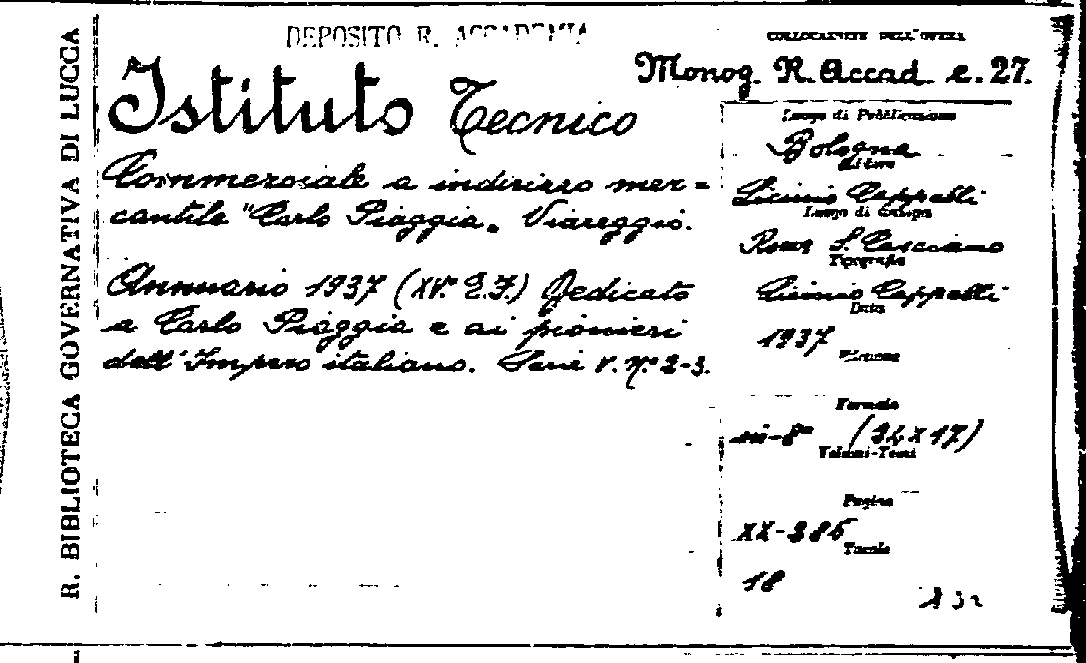 R. BIBLIOTECA GOVERNATIVA DI LUCCA
DEPOSITO R. ACCADEMIA
COLLOCAZIONE DELL'OPERA
Monog. R. Accad c. 27.
Istituto Tecnico
Commerciale a indirizzo mer=
cantile "Carlo Piaggia" Viareggio.
Annuario 1937 (XV. E.F.) Dedicato
a Carlo Piaggia e ai pionieri
dell'Impero italiano. Serie V. N.° 2-3.
Luogo di Pubblicazione
Bologna
Editore
Licinio Cappelli
Luogo di Stampa
Rocca S. Casciano
Tipografia
Licinio Cappelli
Data
1937
Edizione
Formato
in-8° (24x17)
Volumi-Tomi
Pagine
XX-386
Tavole
18